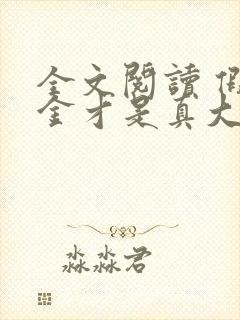 全文閱讀
金才是真大
淼淼君